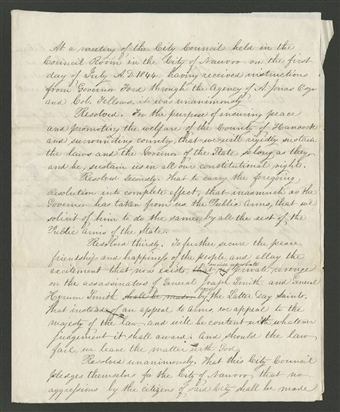 At a meeting of the City Council held in the
Council Room in the City of Nauvoo on the first
day of July A.D. 1844. having received instructions
from Governor Ford through the agency of A. Jonas Esqr
and Col. Fellows, it was unanimously
Resolved. For the purpose of ensuring peace
and promoting the welfare of the County of Hancock
and surrounding country, that we will rigidly sustain
the laws and the Governor of the State so long as they,
and he, sustain us in all our constitutional rights.
Resolved secondly. That to carry the foregoing
resolution into complete effect, that inasmuch as the
Governor has taken from us the Public Arms, that we
solicit of him to do the same by all the rest of the
Public arms of the State.
Resolved thirdly. To further secure the peace,
friendship and happiness of the people, and allay the
excitement that now exists, that we reprobate private revenge
on the assassinators of General Joseph Smith and General
Hyrum Smith shall be made by the Latter Day Saints.
That instead of an appeal to arms we appeal to the
majesty of the law, and will be content with whatever
judgement it shall award; and should the law
fail we leave the matter with God.
Resolved unanimously. That this City Council
pledges themselves for the City of Nauvoo, that no
aggressions by the citizens of said City shall be made